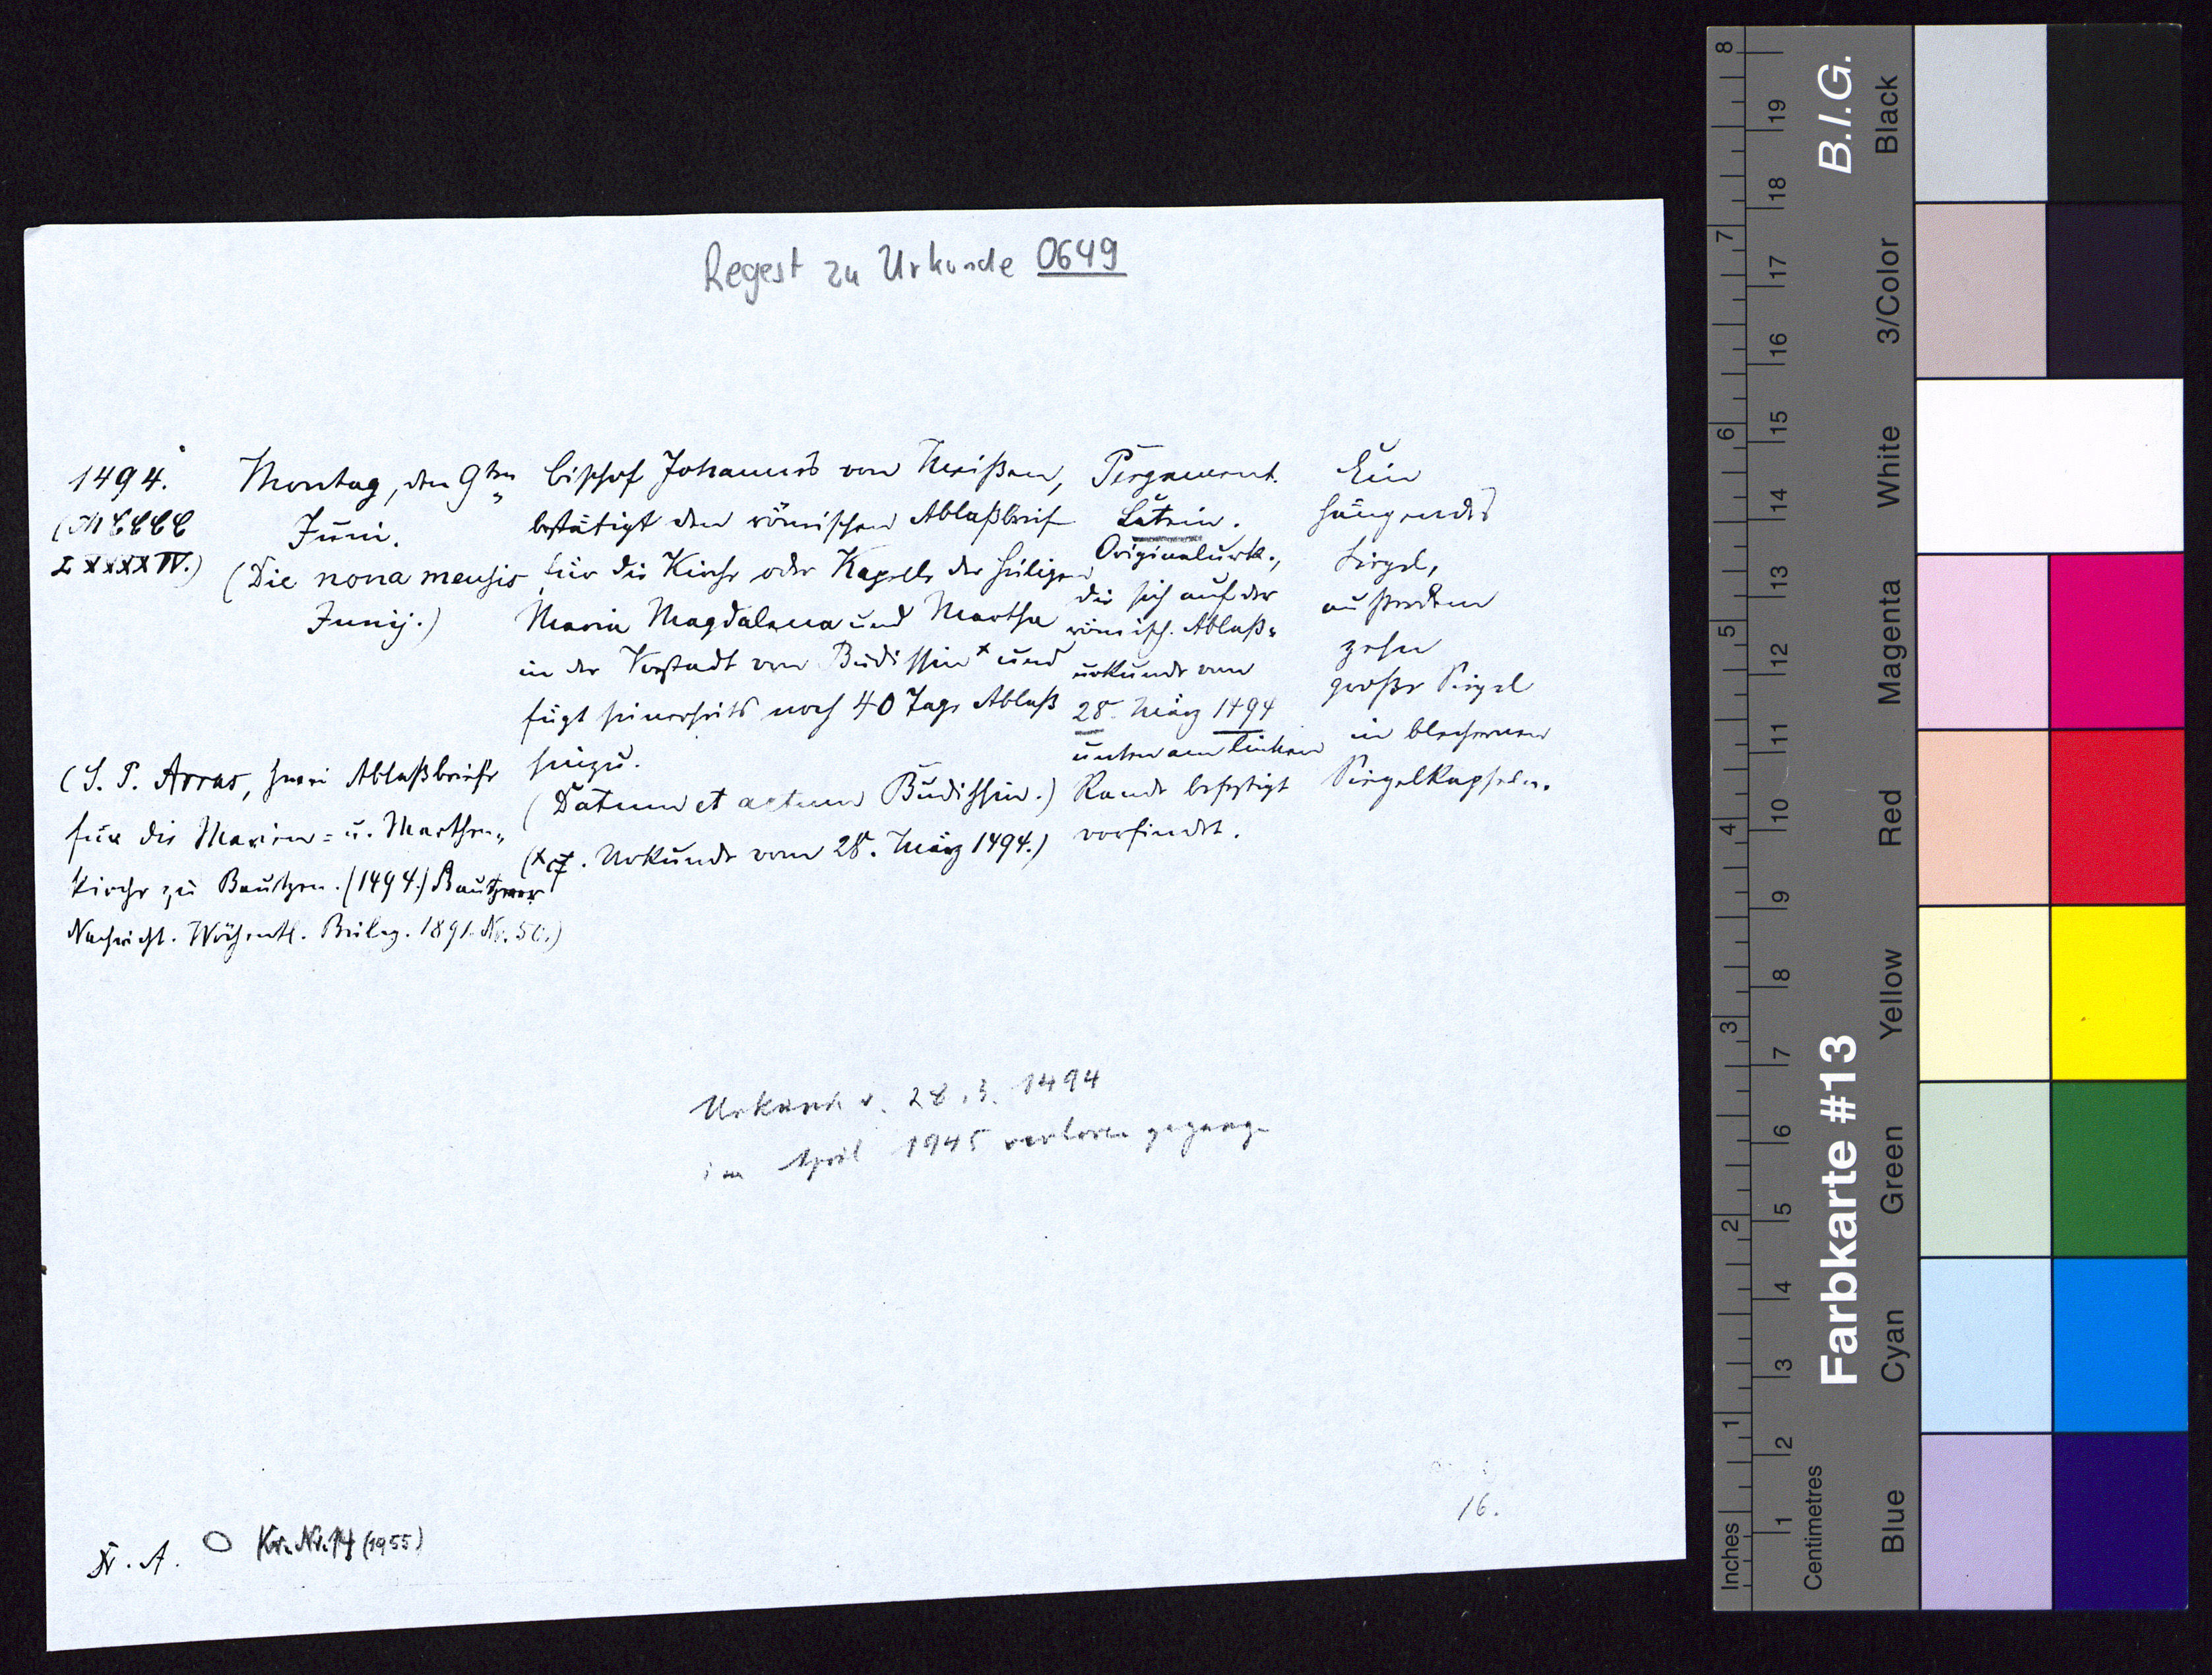 Regest zu Urkunde 0649
1494.
(MCCCC
LXXXXIV.)
Montag, den 9ten
Juni.
(Die nona mensis
Junij.)
Bischof Johannes von Meißen,
bestätigt den römischen Ablaßbrief
für die Kirche oder Kapelle der heiligen
Maria Magdalena und Martha
in der Vorstadt von Budissin x und
fügt seinerseits noch 40 Tage Ablaß
hinzu.
(Datum et actum Budissin.)
(x cf. Urkunde vom 28. März 1494.)
Pergament.
Latein.
Originalurk.,
die sich auf der
römisch. Ablaß=
urkunde vom
28. März 1494
unten am linken
Rande befestigt
vorfindet.
Ein
hängendes
Siegel,
außerdem
zehn
große Siegel
in blechernen
Siegelkapseln.
(S. P. Arras, Zwei Ablaßbriefe
für die Marien= u. Marthen=
kirche zu Bautzen. (1494.) Bautzner
Nachricht. Wöchentl. Beilag. 1891. Nr. 50.)
Urkunde v. 28.3. 1494
im April 1945 verloren gegangen
16.
Kr. Nr. 14 (1955)
B.I.G.
Farbkarte #13
Inches
1
2
3
4
5
6
7
8
Centimetres
1
2
3
4
5
6
7
8
9
10
11
12
13
14
15
16
17
18
19
Blue
Cyan
Green
Yellow
Red
Magenta
White
3/Color
Black